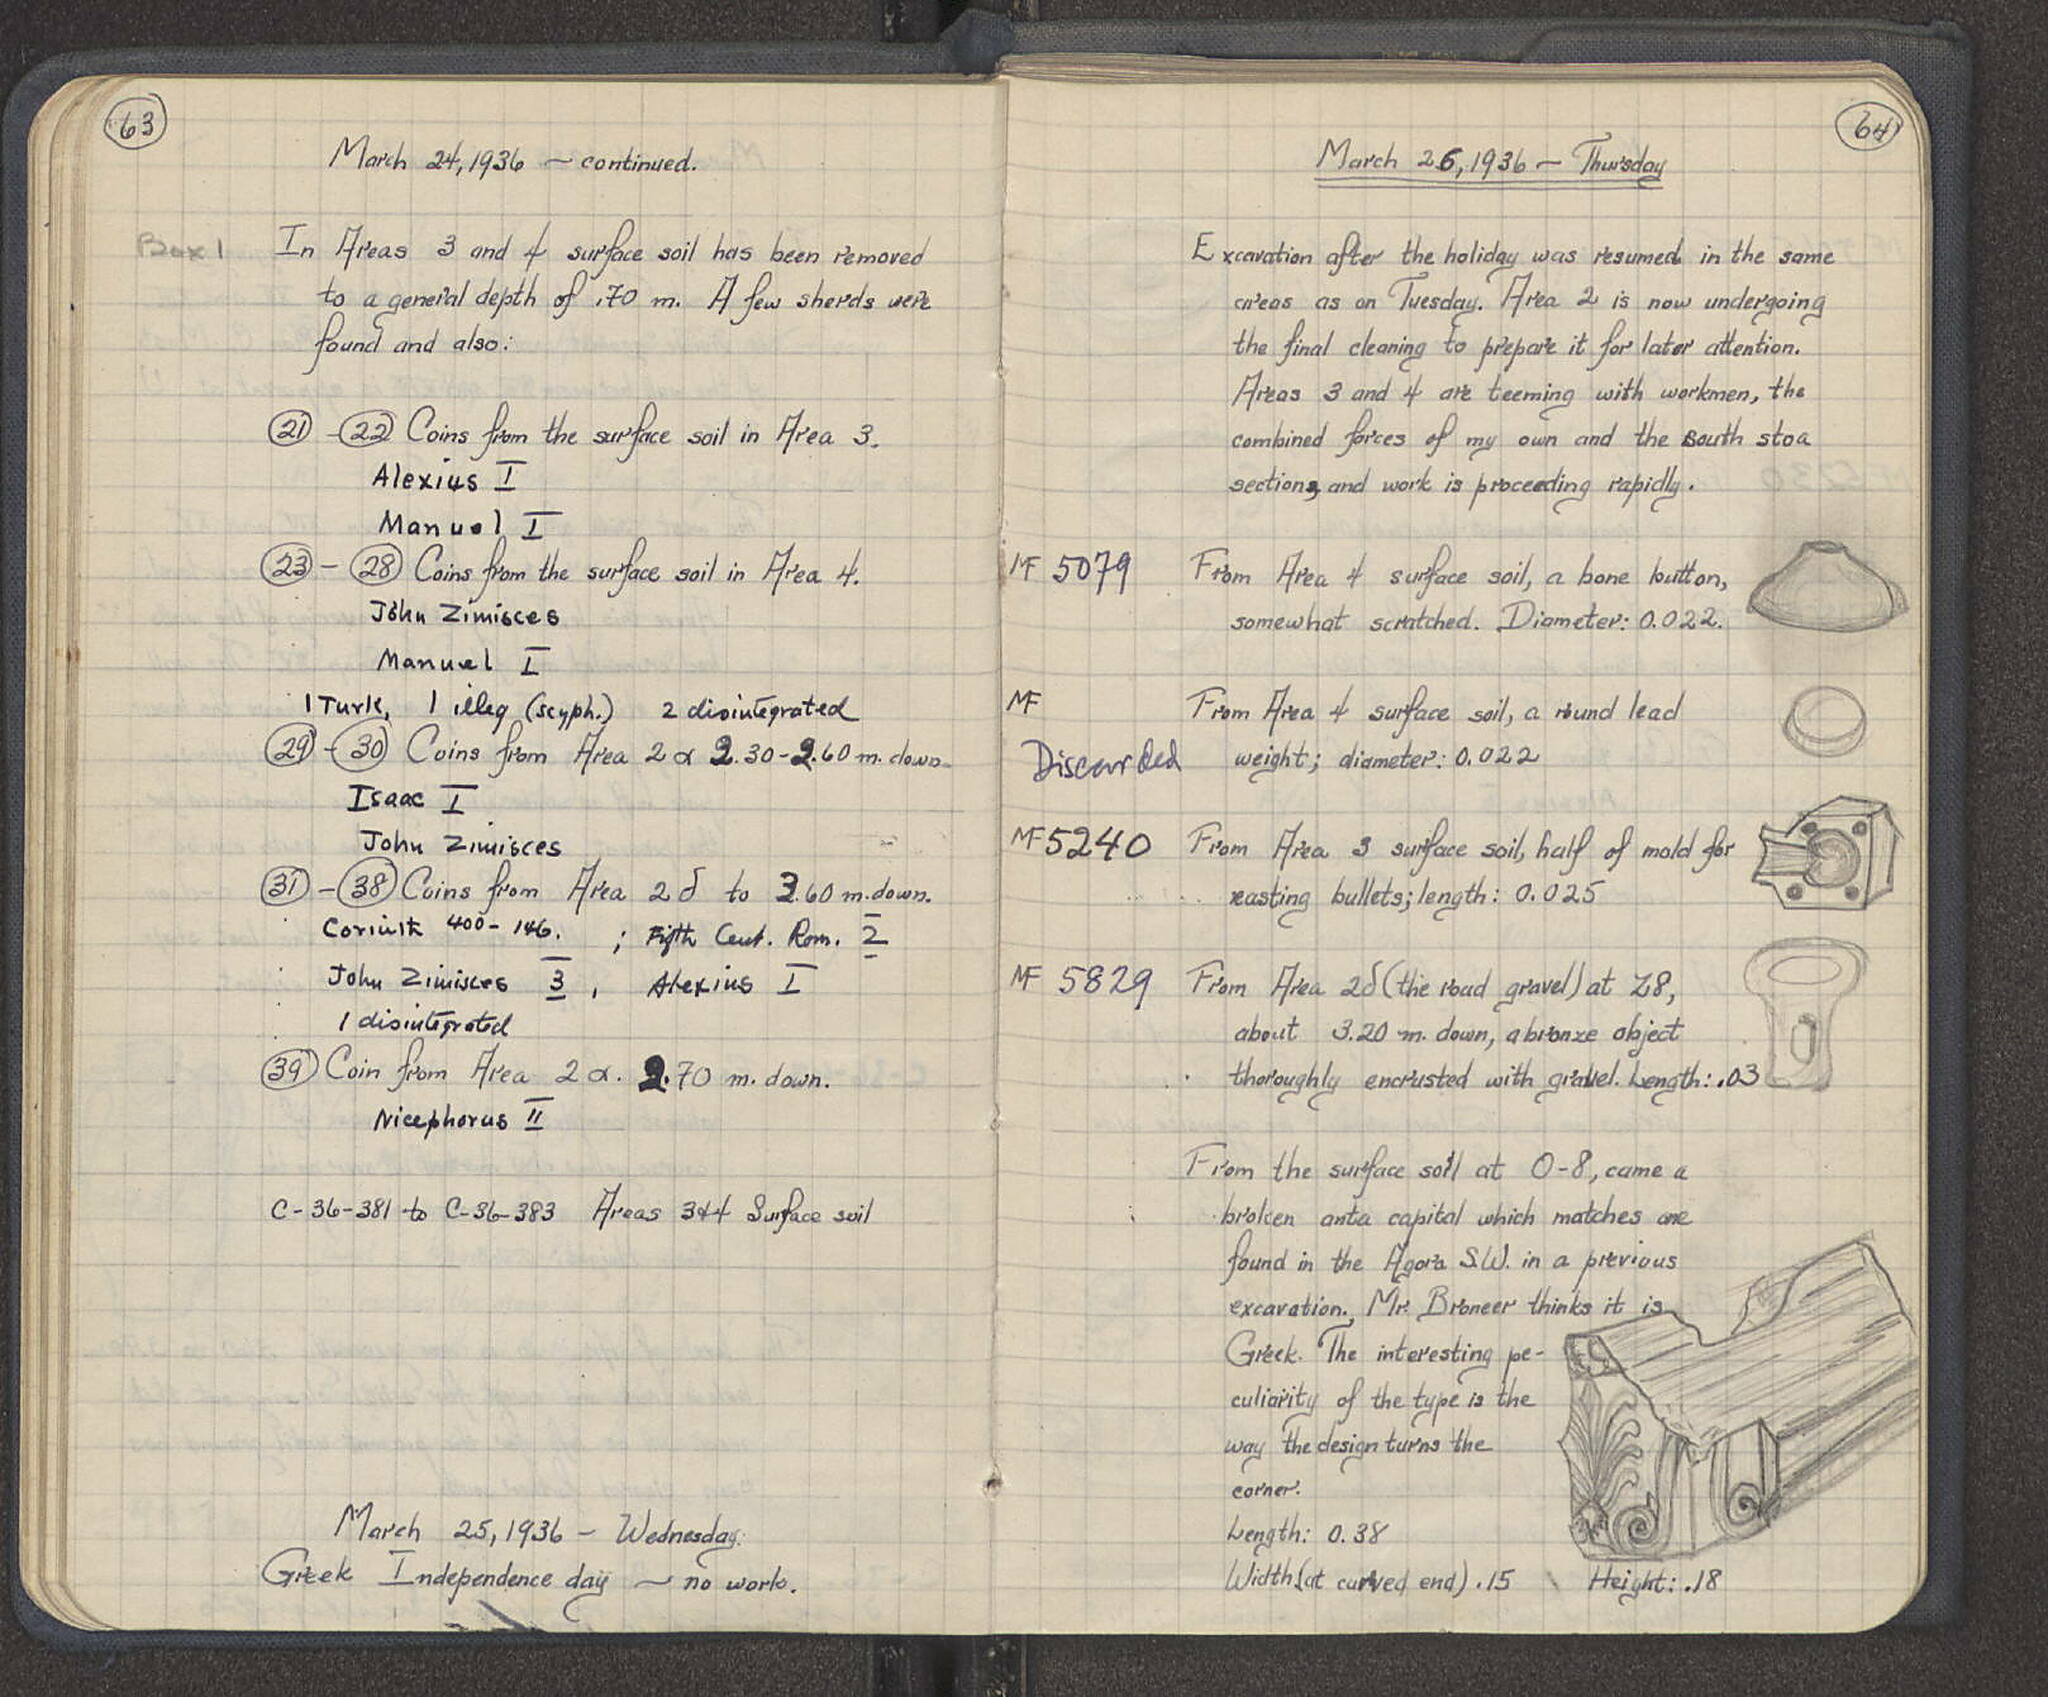 63
March 24, 1936 — continued.
Box 1
In Areas 3 and 4 surface soil has been removed
to a general depth of .70 m. A few sherds were
found and also:
21 - 22 Coins from the surface soil in Area 3.
Alexius I
Manuel I
23 - 28 Coins from the surface soil in Area 4.
John Zimisces
Manuel I
1 Turk, 1 illeg (scyph.) 2 disintegrated
29 - 30 Coins from Area 2 α 2.30-2.60 m. down.
Isaac I
John Zimisces
31 - 38 Coins from Area 2 δ to 3.60 m. down.
Corinth 400-146. ; Fifth Cent. Rom. 2
John Zimisces 3, Alexius I
1 disintegrated
39 Coin from Area 2 α. 2.70 m. down.
Nicephorus II
C-36-381 to C-36-383 Areas 3+4 Surface soil
March 25, 1936 — Wednesday.
Greek Independence day — no work.
64
March 26, 1936 — Thursday
Excavation after the holiday was resumed in the same
areas as on Tuesday. Area 2 is now undergoing
the final cleaning to prepare it for later attention.
Areas 3 and 4 are teeming with workmen, the
combined forces of my own and the south stoa
sections, and work is proceeding rapidly.
MF 5079 From Area 4 surface soil, a bone button,
somewhat scratched. Diameter: 0.022.
MF From Area 4 surface soil, a round lead
Discarded weight; diameter: 0.022
MF 5240 From Area 3 surface soil, half of mold for
casting bullets; length: 0.025
MF 5829 From Area 2δ (the road gravel) at Z8,
about 3.20 m. down, a bronze object
thoroughly encrusted with gravel. Length: .03
From the surface soil at O-8, came a
broken anta capital which matches one
found in the Agora S.W. in a previous
excavation. Mr. Broneer thinks it is
Greek. The interesting pe-
culiarity of the type is the
way the design turns the
corner.
Length: 0.38
Width (at curved end) .15 Height: .18